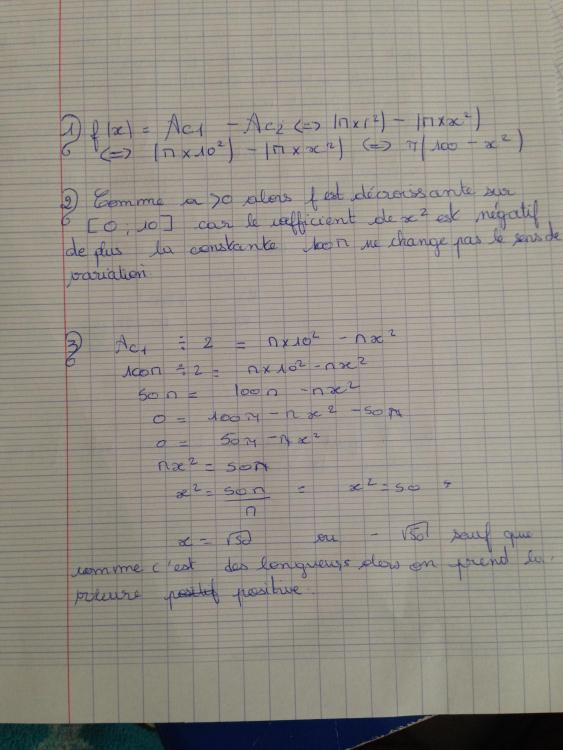 1) f(x) = Ac1 - Ac2 <=> (π×r²) - (π×x²)
<=> (π×10²) - (π×x²) <=> π(100 - x²)
2) Comme a>0 alors f est décroissante sur
[0, 10] car le coefficient de x² est négatif
de plus la constante 100π ne change pas le sens de
variation
3) Ac1 ÷ 2 = π×10² - πx²
100π ÷ 2 = π×10² - πx²
50π = 100π - πx²
0 = 100π - πx² - 50π
0 = 50π - πx²
πx² = 50π
x² = 50π/π = x² = 50
x = √50 ou - √50 sauf que
comme c'est des longueurs alors on prend la
positive.